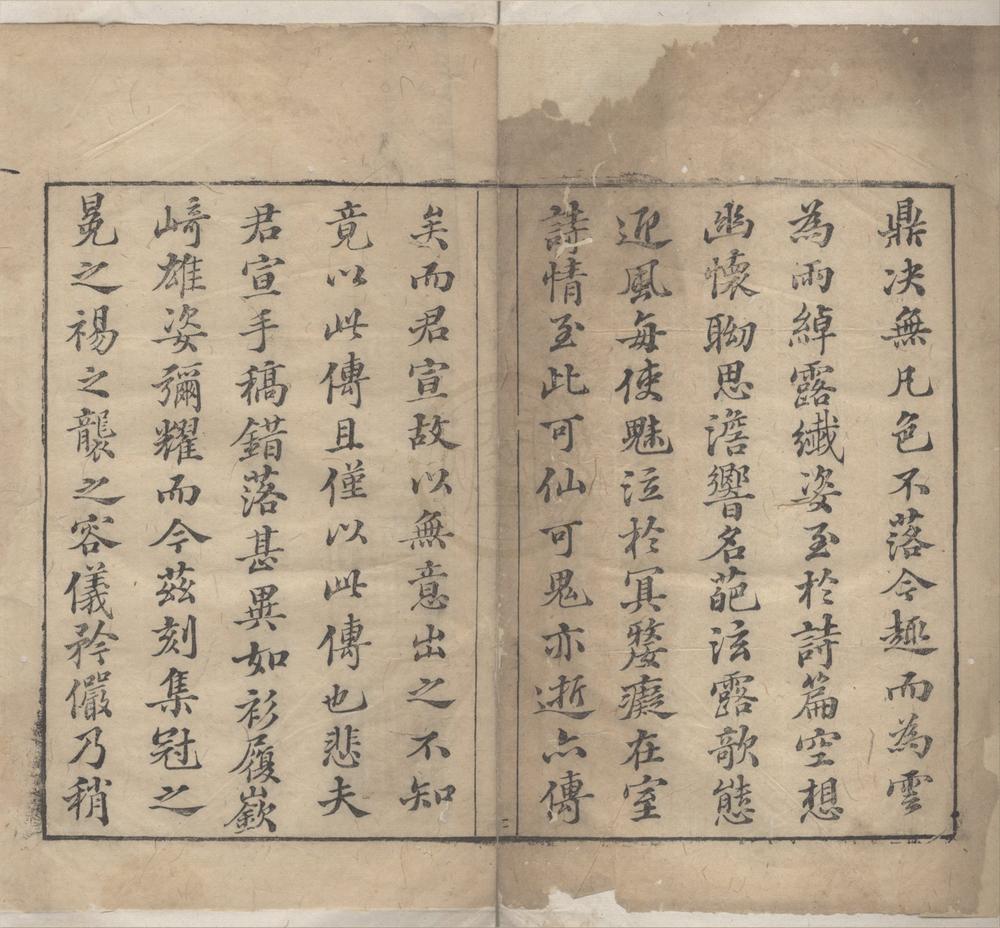 鼎决無凡色不落今趣而為雲
為雨綽露纖姿至於詩篇空想
幽懷聏思澹響名葩泫露歌態
迎風每使魅泣於冥嫠癡在室
詩情至此可仙可鬼亦逝亦傳
矣而君宣故以無意出之不知
竟以此傳且僅以此傳也悲夫
君宣手稿錯落甚異如衫履嶔
﨑雄姿彌耀而今茲刻集冠之
冕之裼之襲之容儀矜儼乃稍